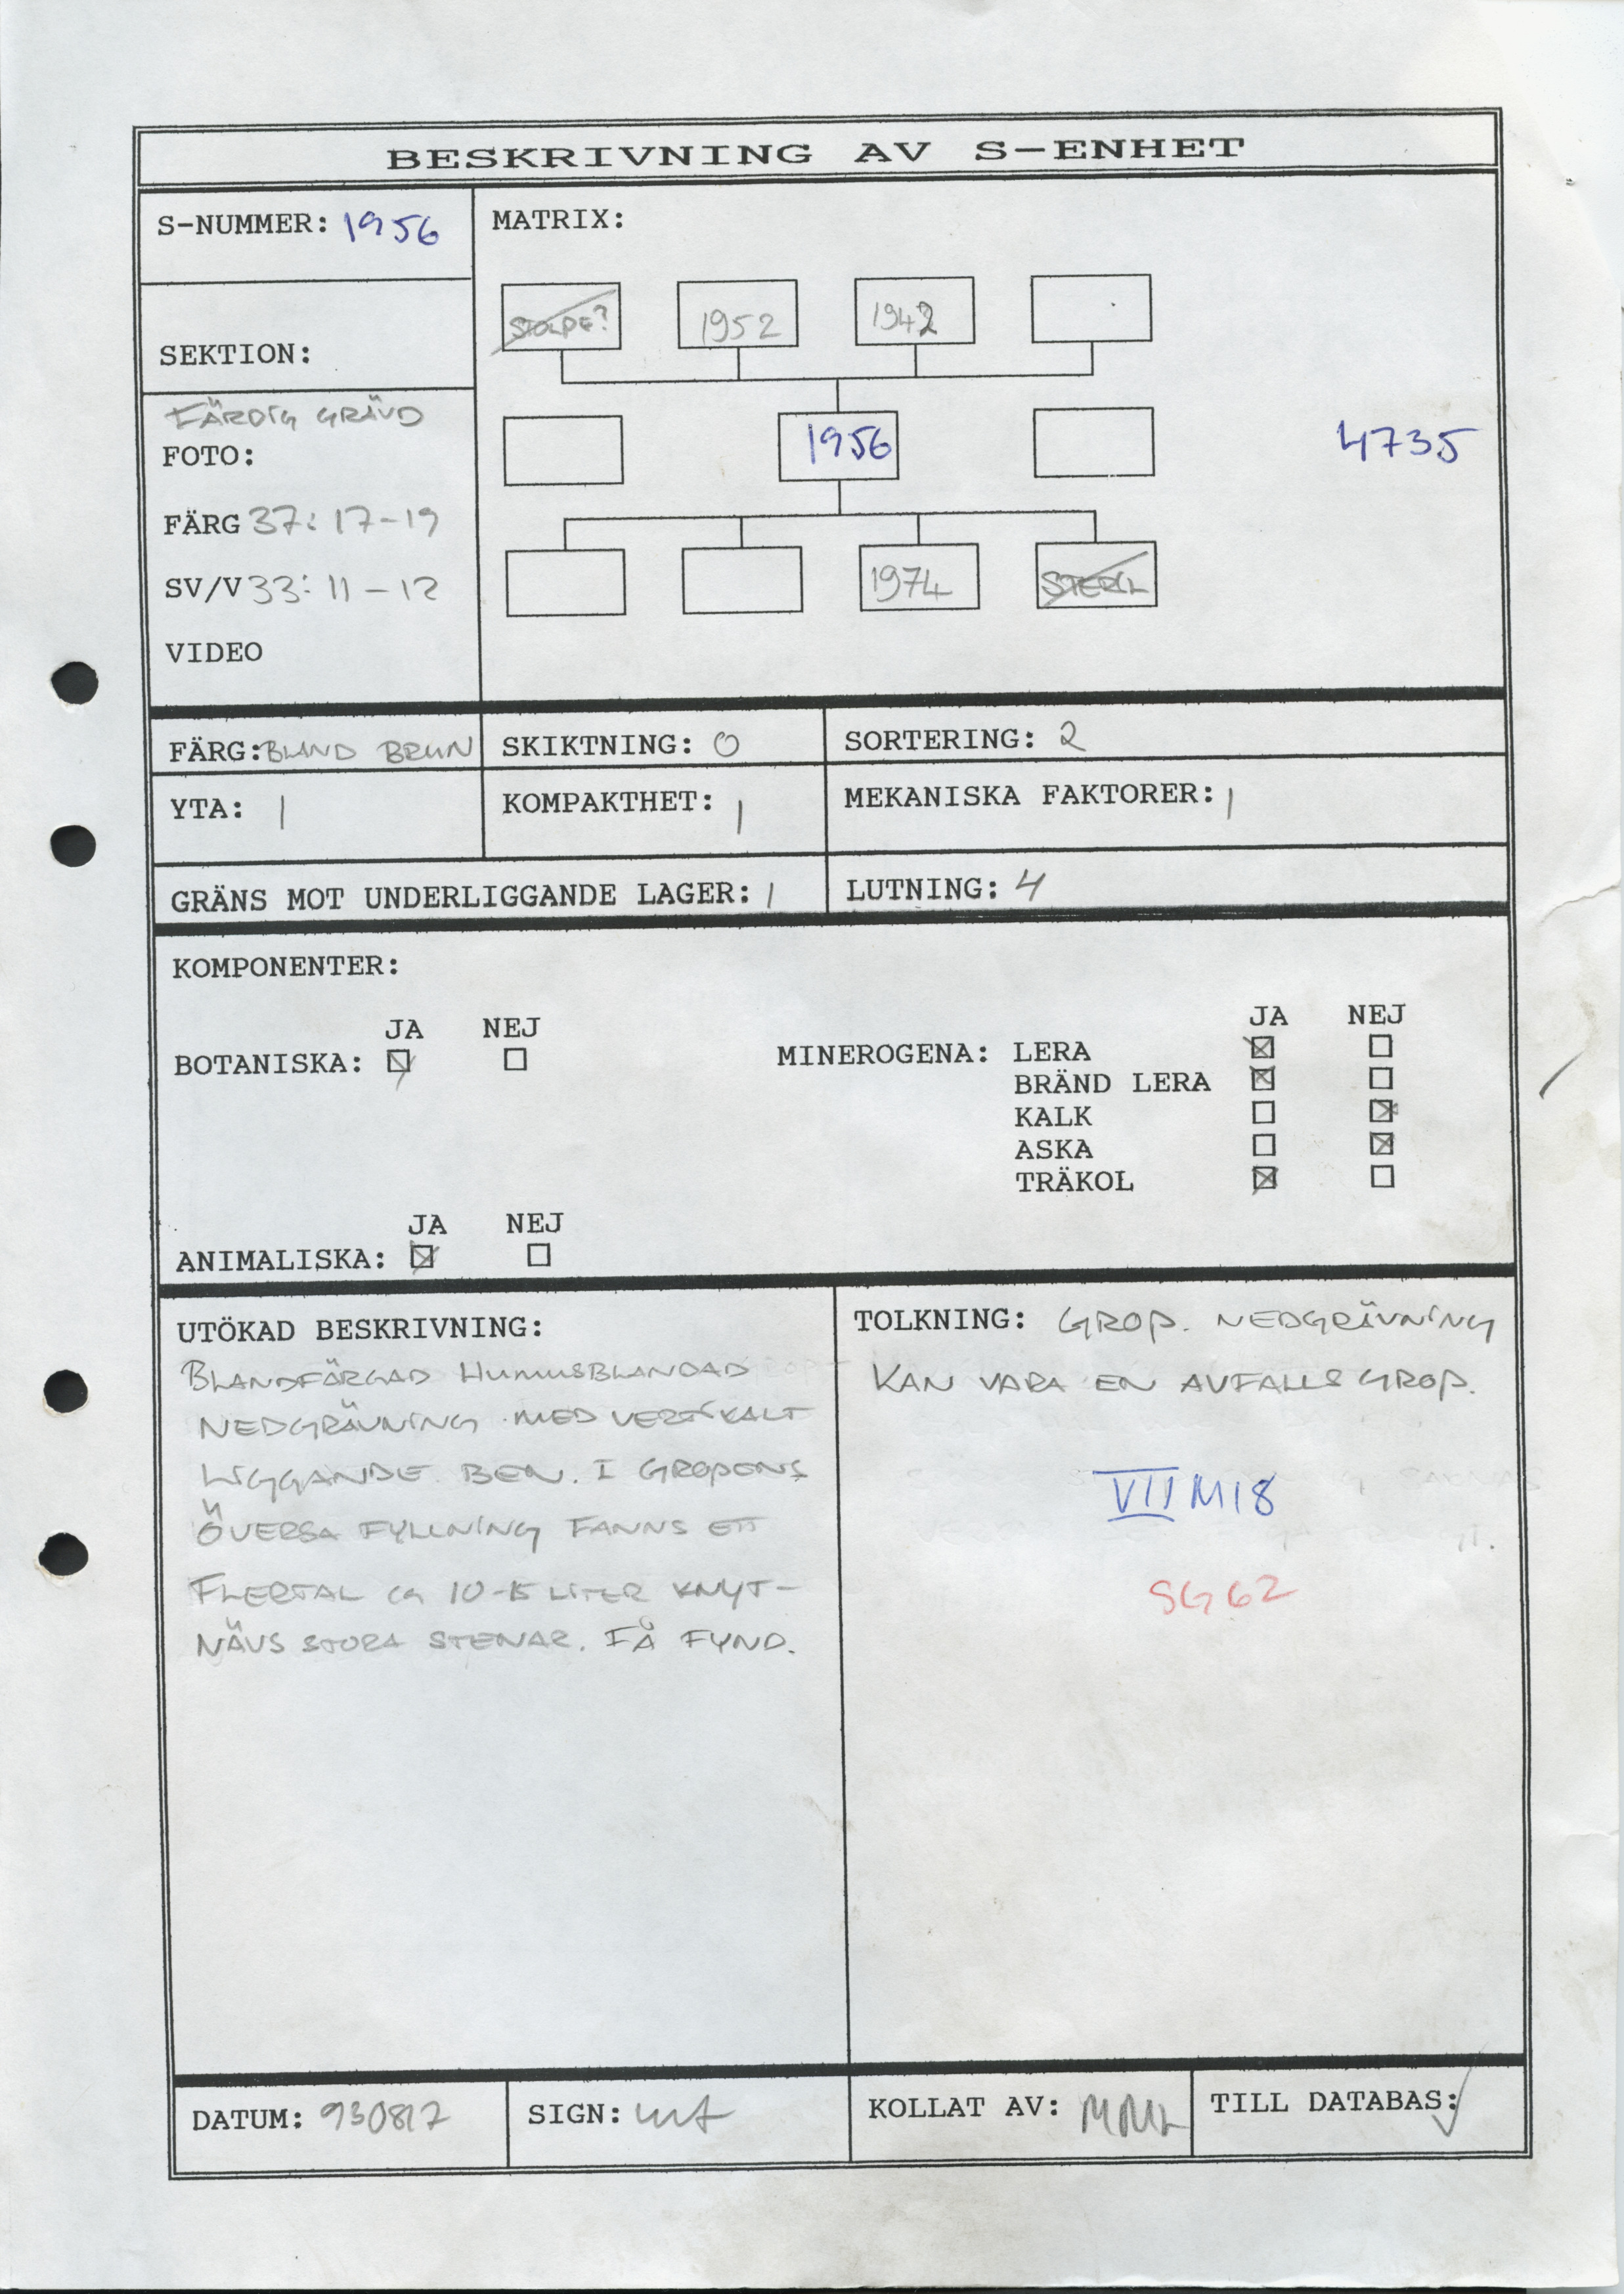 BESKRIVNING AV S-ENHET
S-NUMMER: 1956
MATRIX:
STOLPE? 1952 1942
SEKTION:
FÄRDIG GRÄVD
FOTO:
1956
4735
FÄRG 37: 17-19
SV/V 33: 11-12
1974 STERIL
VIDEO
FÄRG: BLAND BRUN SKIKTNING: 0 SORTERING: 2
YTA: 1 KOMPAKTHET: 1 MEKANISKA FAKTORER: 1
GRÄNS MOT UNDERLIGGANDE LAGER: 1 LUTNING: 4
KOMPONENTER:
JA NEJ
BOTANISKA:
JA NEJ
MINEROGENA: LERA
BRÄND LERA
KALK
ASKA
TRÄKOL
JA NEJ
ANIMALISKA:
UTÖKAD BESKRIVNING:
BLANDFÄRGAD HUMUSBLANDAD
NEDGRÄVNING MED VERTIKALT
LIGGANDE BEN. I GROPENS
ÖVERSA FYLLNING FANNS ETT
FLERTAL CA 10-15 LITER KNYT-
NÄVS STORA STENAR. FÅ FYND.
TOLKNING: GROP. NEDGRÄVNING
KAN VARA EN AVFALLSGROP.
VII M18
SG 62
DATUM: 930817 SIGN: KOLLAT AV: MML TILL DATABAS: